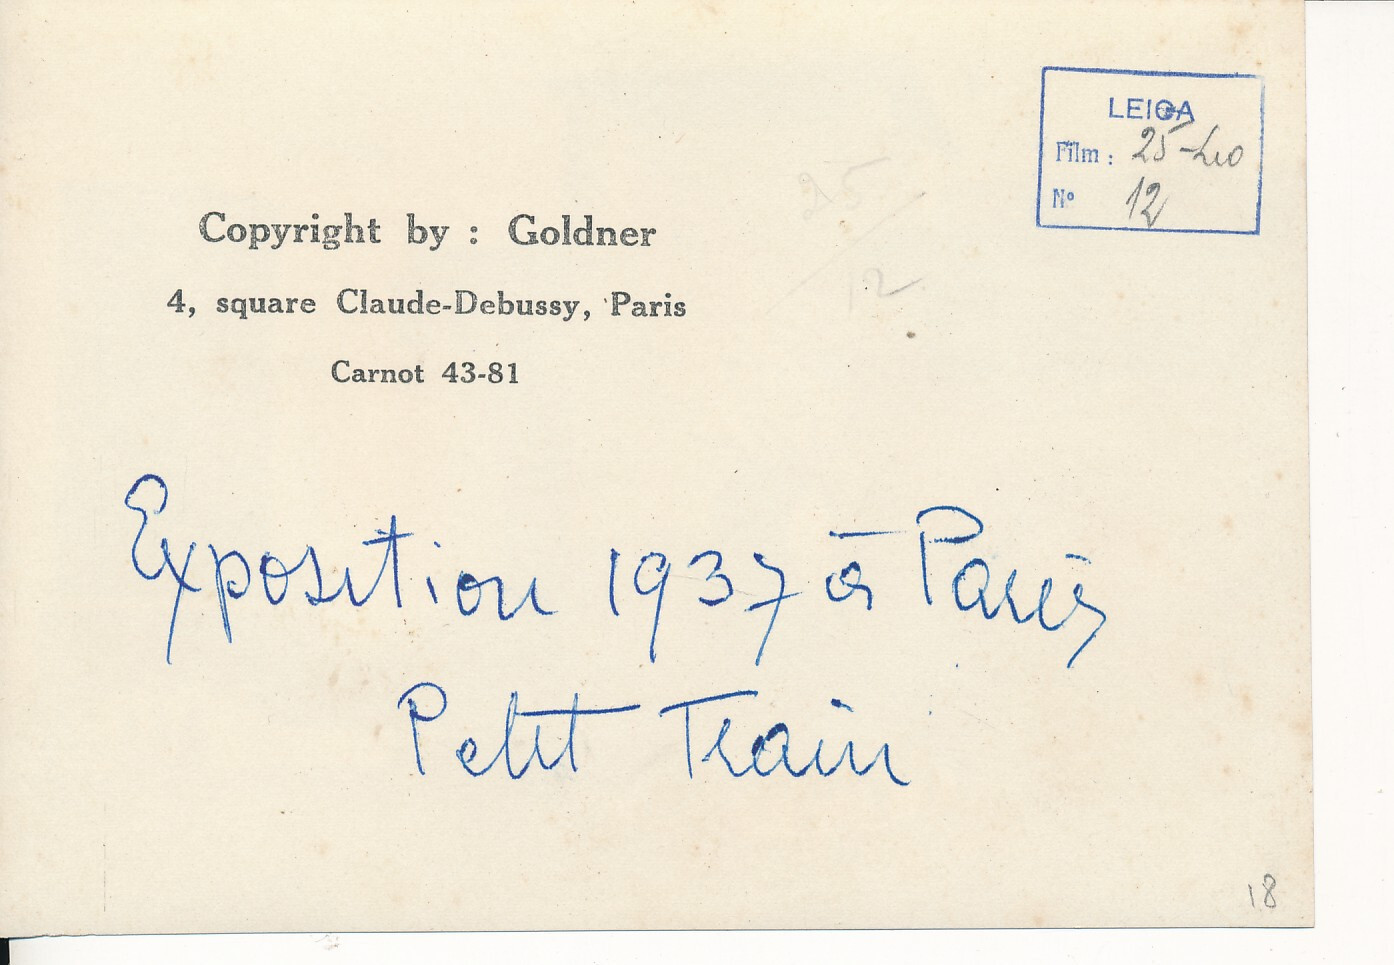 LEICA
Film : 25-Leo
Nº 12
25
12
Copyright by : Goldner
4, square Claude-Debussy, Paris
Carnot 43-81
Exposition 1937 à Paris
Petit Train
18